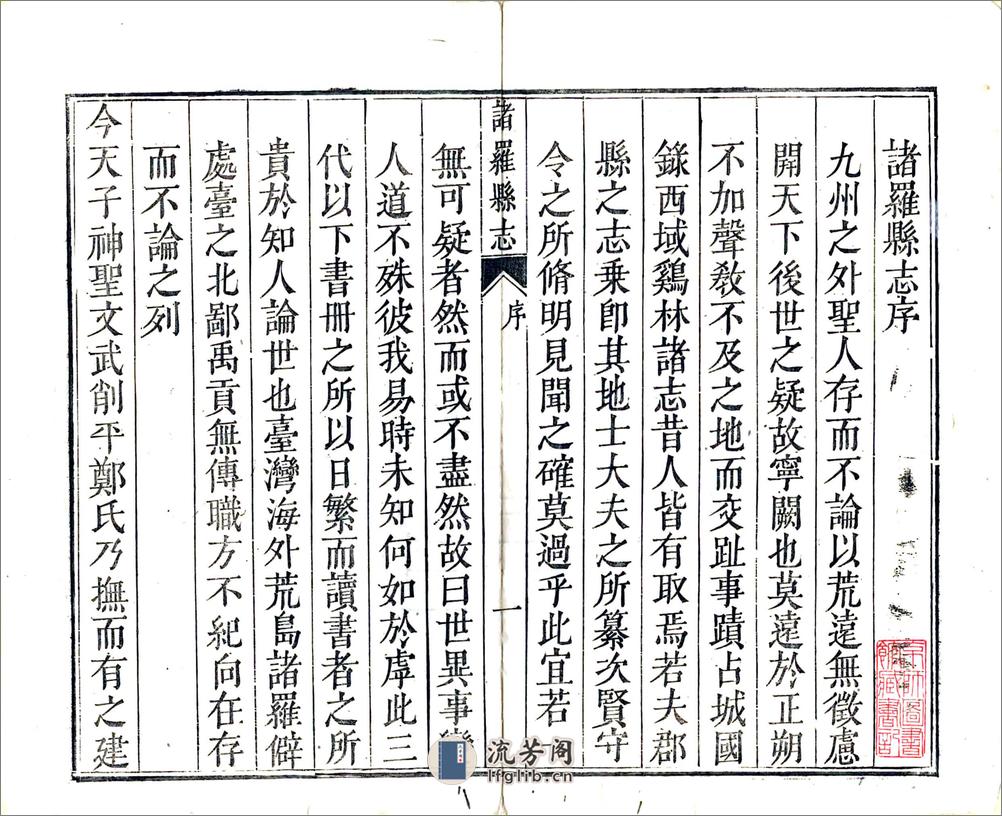 諸羅縣志序
九州之外聖人存而不論以荒遠無徵慮
開天下後世之疑故寧闕也莫遠於正朔
不加聲敎不及之地而交趾事蹟占城國
錄西域鷄林諸志昔人皆有取焉若夫郡
縣之志乘卽其地士大夫之所纂次賢守
令之所脩明見聞之確莫過乎此宜若
諸羅縣志
序
一
無可疑者然而或不盡然故曰世異事
人道不殊彼我易時未知何如於虖此三
代以下書冊之所以日繁而讀書者之所
貴於知人論世也臺灣海外荒島諸羅僻
處臺之北鄙禹貢無傳職方不紀向在存
而不論之列
今天子神聖文武削平鄭氏乃撫而有之建
京師圖書
館藏書記
流芳阁
lfglib.cn